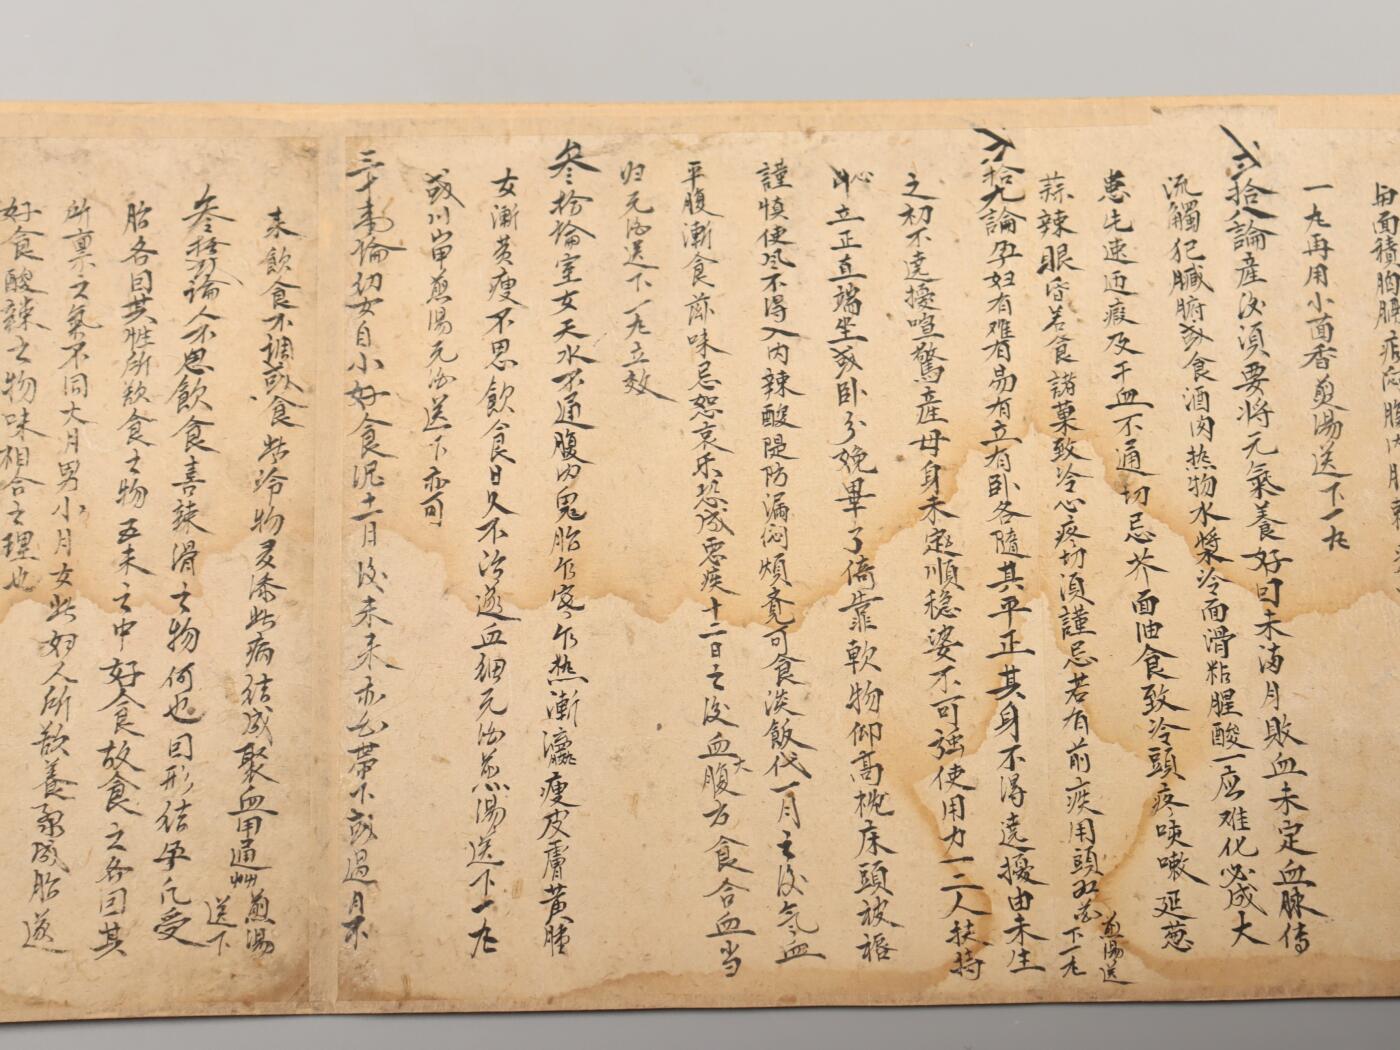 一丸再用小茴香煎湯送下一丸
弍拾八論産後須要将元氣養好回未滿月敗血未定血脉傳
流觸犯臟腑或食酒肉热物水漿冷面滑粘腥酸一应难化必成大
患屯速迊瘕及干血不通切忌芥面油食致冷頭疼咳嗽延葱
蒜辣眼昏若食諸菓致冷心疼切須謹忌若有前疾用頭紅花煎湯送下一丸
弍拾九論孕妇有难有易有立有卧各隨其平正其身不得遶擾由未生
之初不遶擾喧驚産母身未定順稳婆不可强使用力一二人扶持
心立正直端坐或卧分娩畢了倚靠軟物仰高枕床頭被褥
謹慎使风不得入内辣酸隄防漏闷煩竟可食淡飯代一月之後气血
平腹漸食蔬味忌恕哀乐恐成惡疾十二日之後血腹大方食合血当
归元酒送下一丸立效
叁拾論室女天水不通腹内鬼胎乍寒乍热漸瀛瘦皮膚黄腫
女漸黄瘦不思飲食日久不治逐血細元酒煎湯送下一丸
或川芎煎湯元酒送下亦可
三十壹論幼女自小好食泥土日後未来亦色带下或過月不
来飲食不調或食些冷物又添些病结成聚血用通草煎湯送下
叁拾弍論人不思飲食喜辣滑之物何也回形结孕凡受
胎各回其性所欲食之物五未之中好食故食之各回其
所禀之氣不同大月男小月女些妇人所欲養承成胎遂
好食酸辣之物味相合之理也